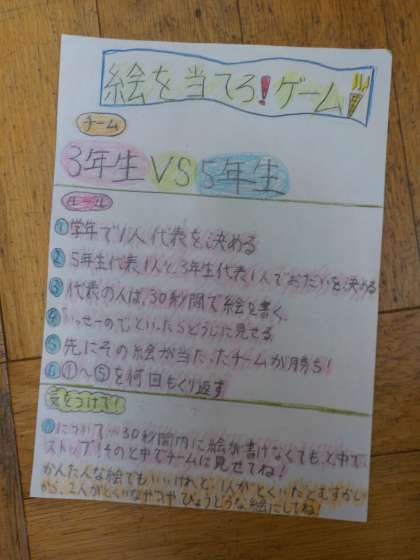 絵を当てろ!ゲーム
チーム
3年生 VS 5年生
ルール
①学年で1人代表を決める
②5年生代表1人と、3年生代表1人でおだいを決める
③代表の人は、30秒間で絵を書く。
④いっせーのでといったらどうじに見せる
⑤先にその絵が当たったチームが勝ち!
⑥①〜⑤を何回もくり返す
気をつけて!
③について…30秒間内に絵が書けなくても、と中で
ストップ!そのと中でチームに見せてね!
かんたんな絵でもいいけれど、1人がとくいだとむずかしい
から、2人がとくいなやつやびょうどうな絵にしてね!